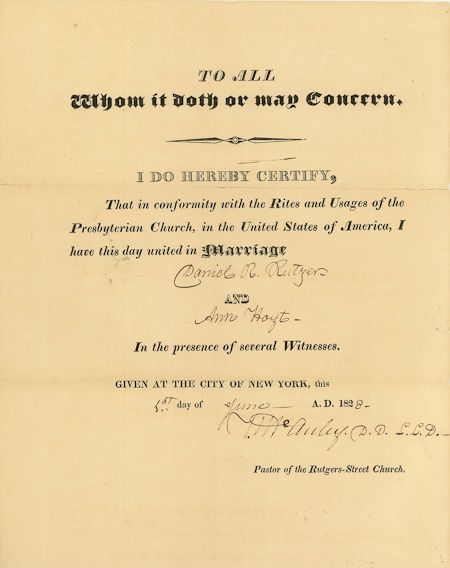 TO ALL
Whom it doth or may Concern.
I DO HEREBY CERTIFY,
That in conformity with the Rites and Usages of the
Presbyterian Church, in the United States of America, I
have this day united in Marriage
Daniel R. Rutgers
AND
Ann Hoyt
In the presence of several Witnesses.
GIVEN AT THE CITY OF NEW YORK, this
1st day of June A. D. 1828
T. McAuley. D. D. L. L. D
Pastor of the Rutgers-Street Church.